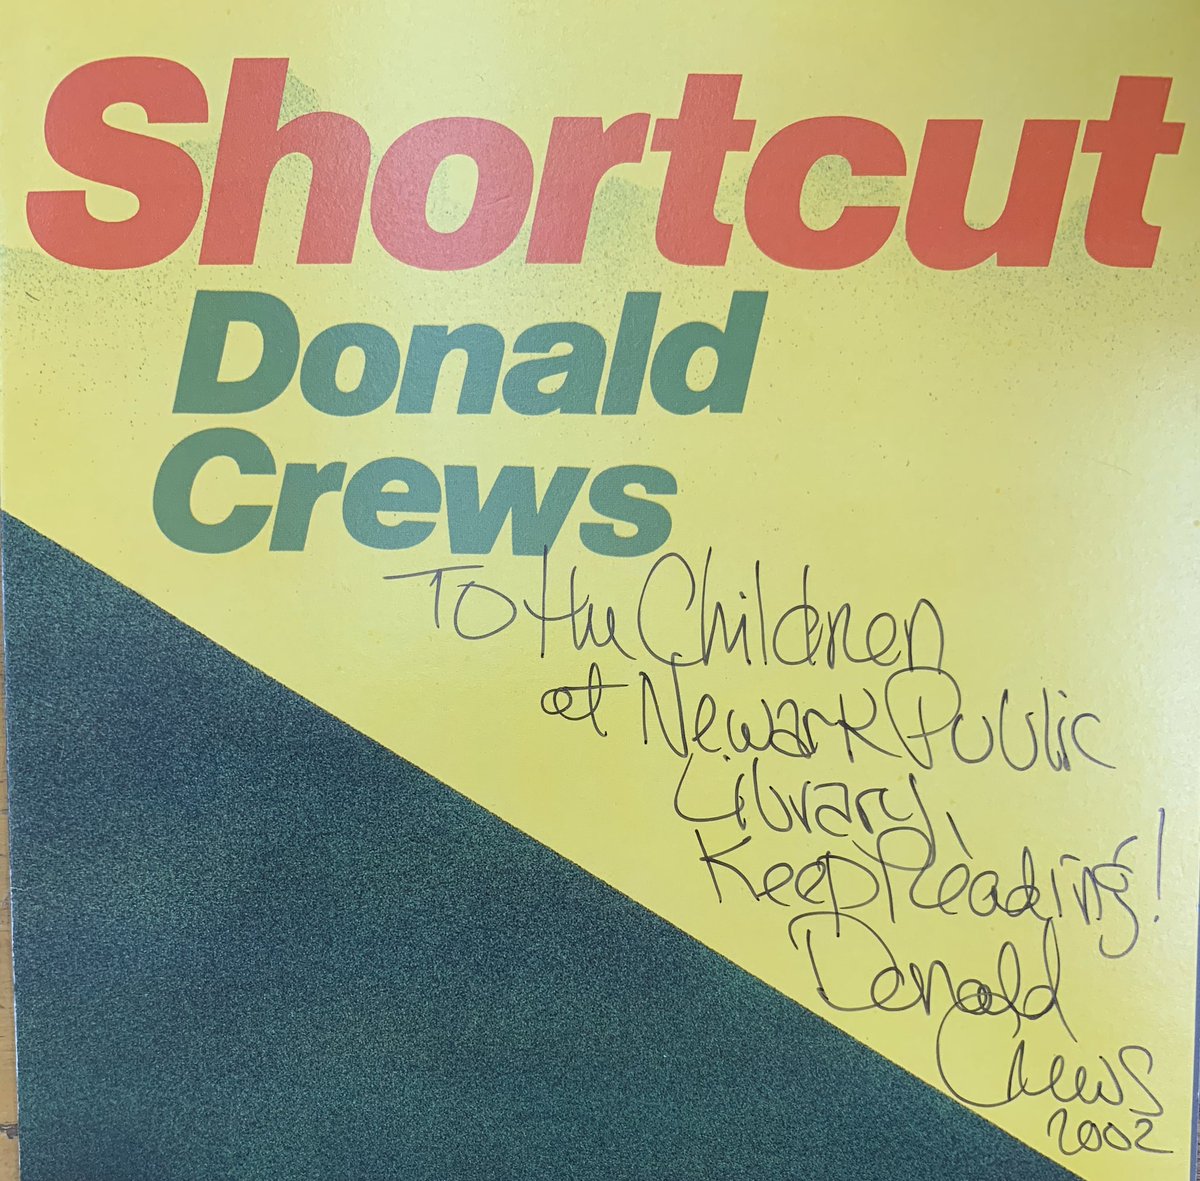 Shortcut
Donald
Crews
To the Children
at Newark Public
Library,
Keep Reading!
Donald
Crews
2002